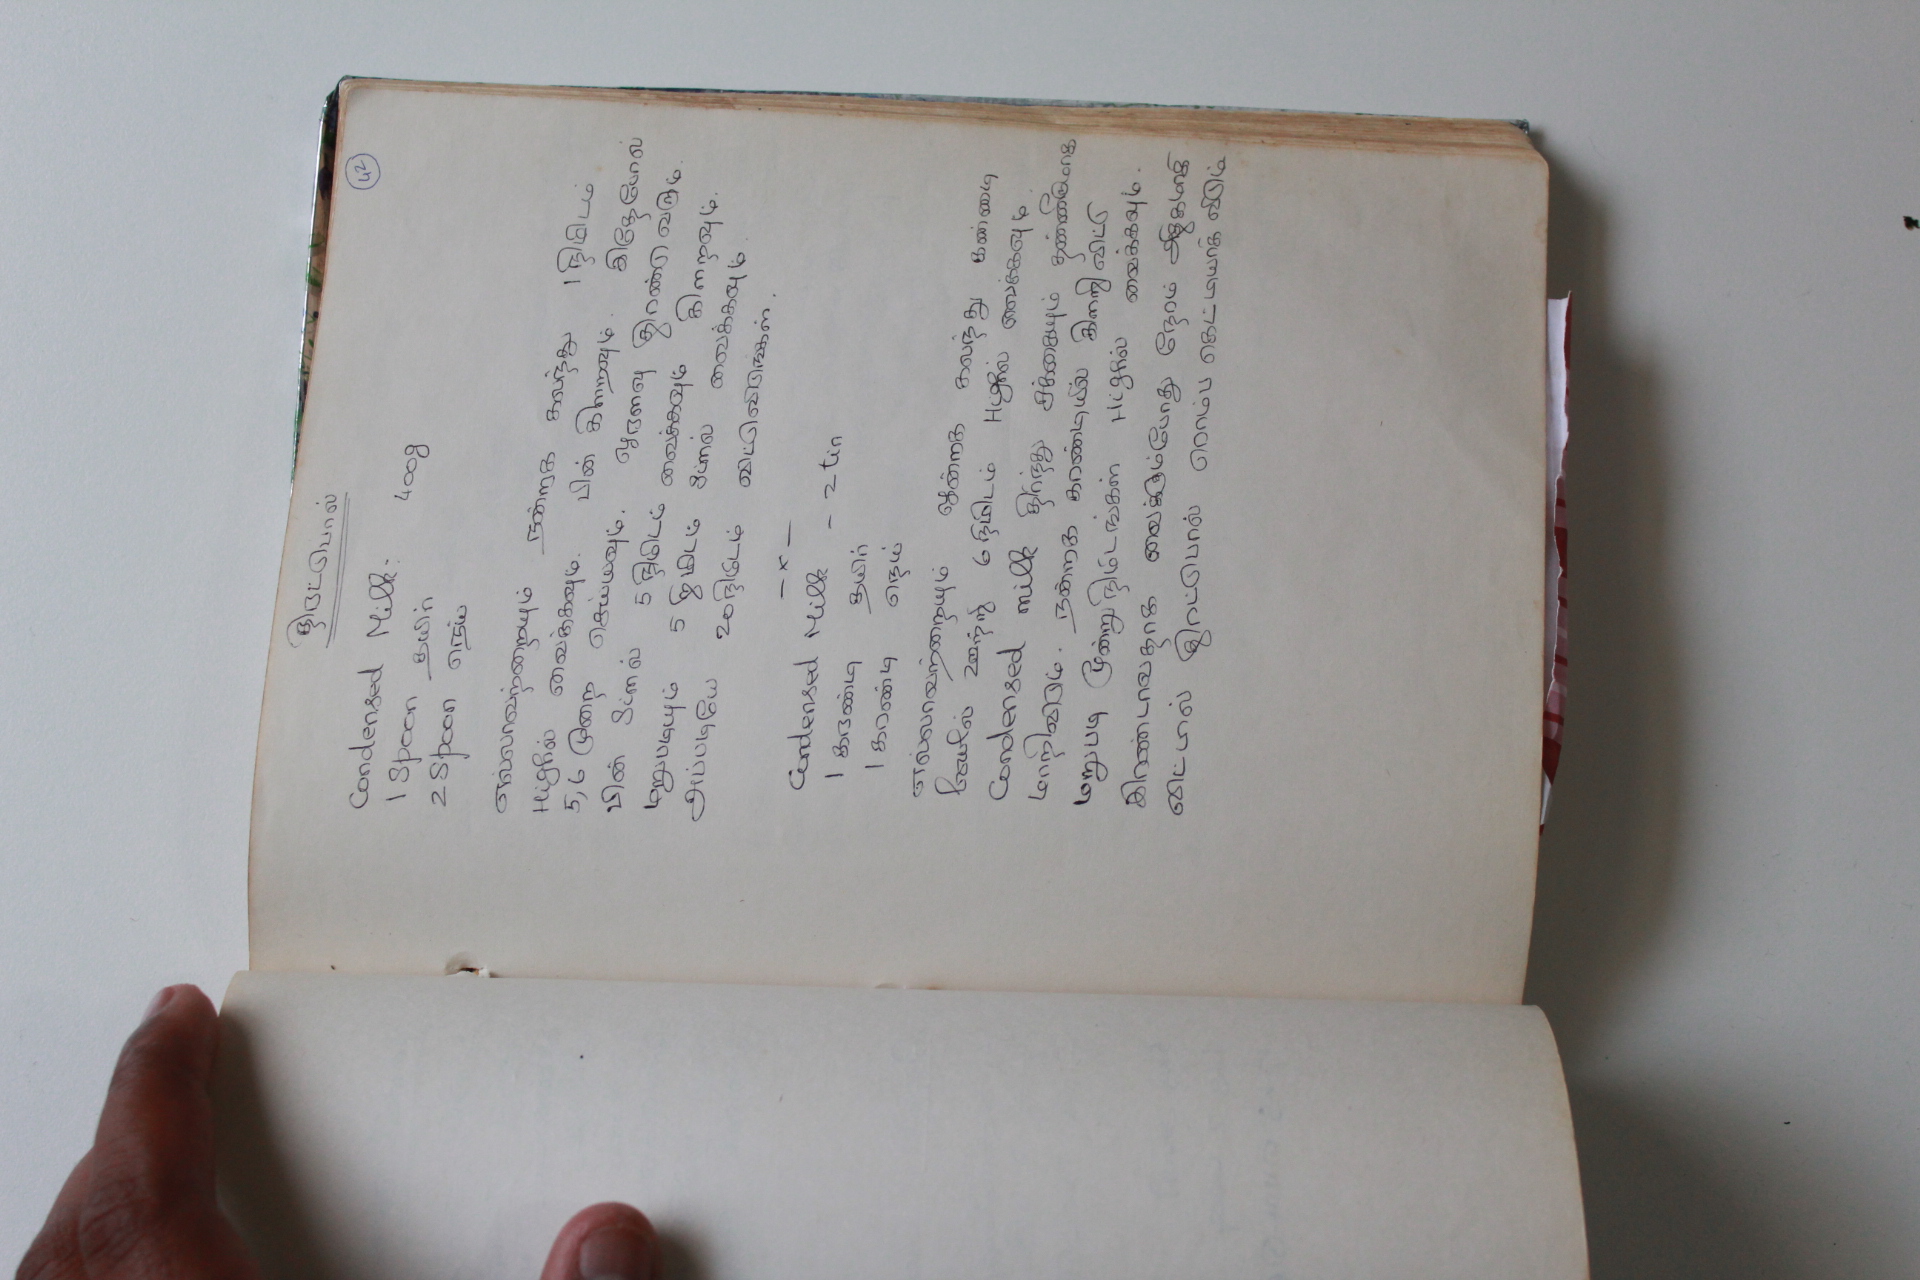 42
திரட்டுப்பால்
Condensed Milk: 400g
1 Spoon தயிர்
2 Spoon நெய்
எல்லாவற்றையும் நன்றாக கலந்து 1 நிமிடம்
Highல் வைக்கவும். பின் கிளறவும். இதேபோல்
5, 6 முறை செய்யவும். ஓரளவு திரண்டு வரும்.
பின் Simல் 5 நிமிடம் வைக்கவும் கிளறவும்.
மறுபடியும் 5 நிமிடம் Simல் வைக்கவும்.
அப்படியே 20 நிமிடம் விட்டுவிடுங்கள்.
—x—
Condensed Milk - 2 tin
1 கரண்டி தயிர்
1 கரண்டி நெய்
எல்லாவற்றையும் ஒன்றாக கலந்து கண்ணாடி
ஊற்றி 6 நிமிடம் Highல் வைக்கவும்.
Condensed milk திரிந்து சக்கையும் தண்ணியுமாக
மாறிவிடும். நன்றாக கரண்டியில் கிளறி விட்டு
மறுபடி மூன்று நிமிடங்கள் Highல் வைக்கவும்.
இரண்டாவதாக வைக்கும்போது நேரம் அதிகமாகி
விட்டால் திரட்டுப்பால் ரொம்ப கெட்டியாகி விடும்